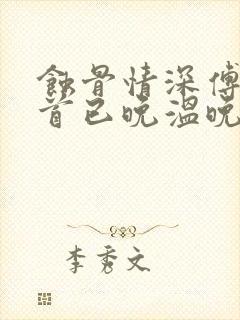 蚀骨情深傅
首已晚温晚
李秀文